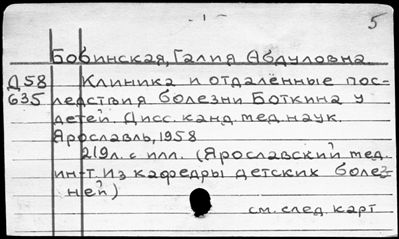 - 1 -
5
Бобинская, Галия Абдуловна
Д58 Клиника и отдалённые пос-
635 ледствия болезни Боткина у
детей. Дисс. канд. мед. наук.
Ярославль, 1958
219л. с илл. (Ярославский мед.
ин-т. Из кафедры детских болез-
ней)
см. след. карт